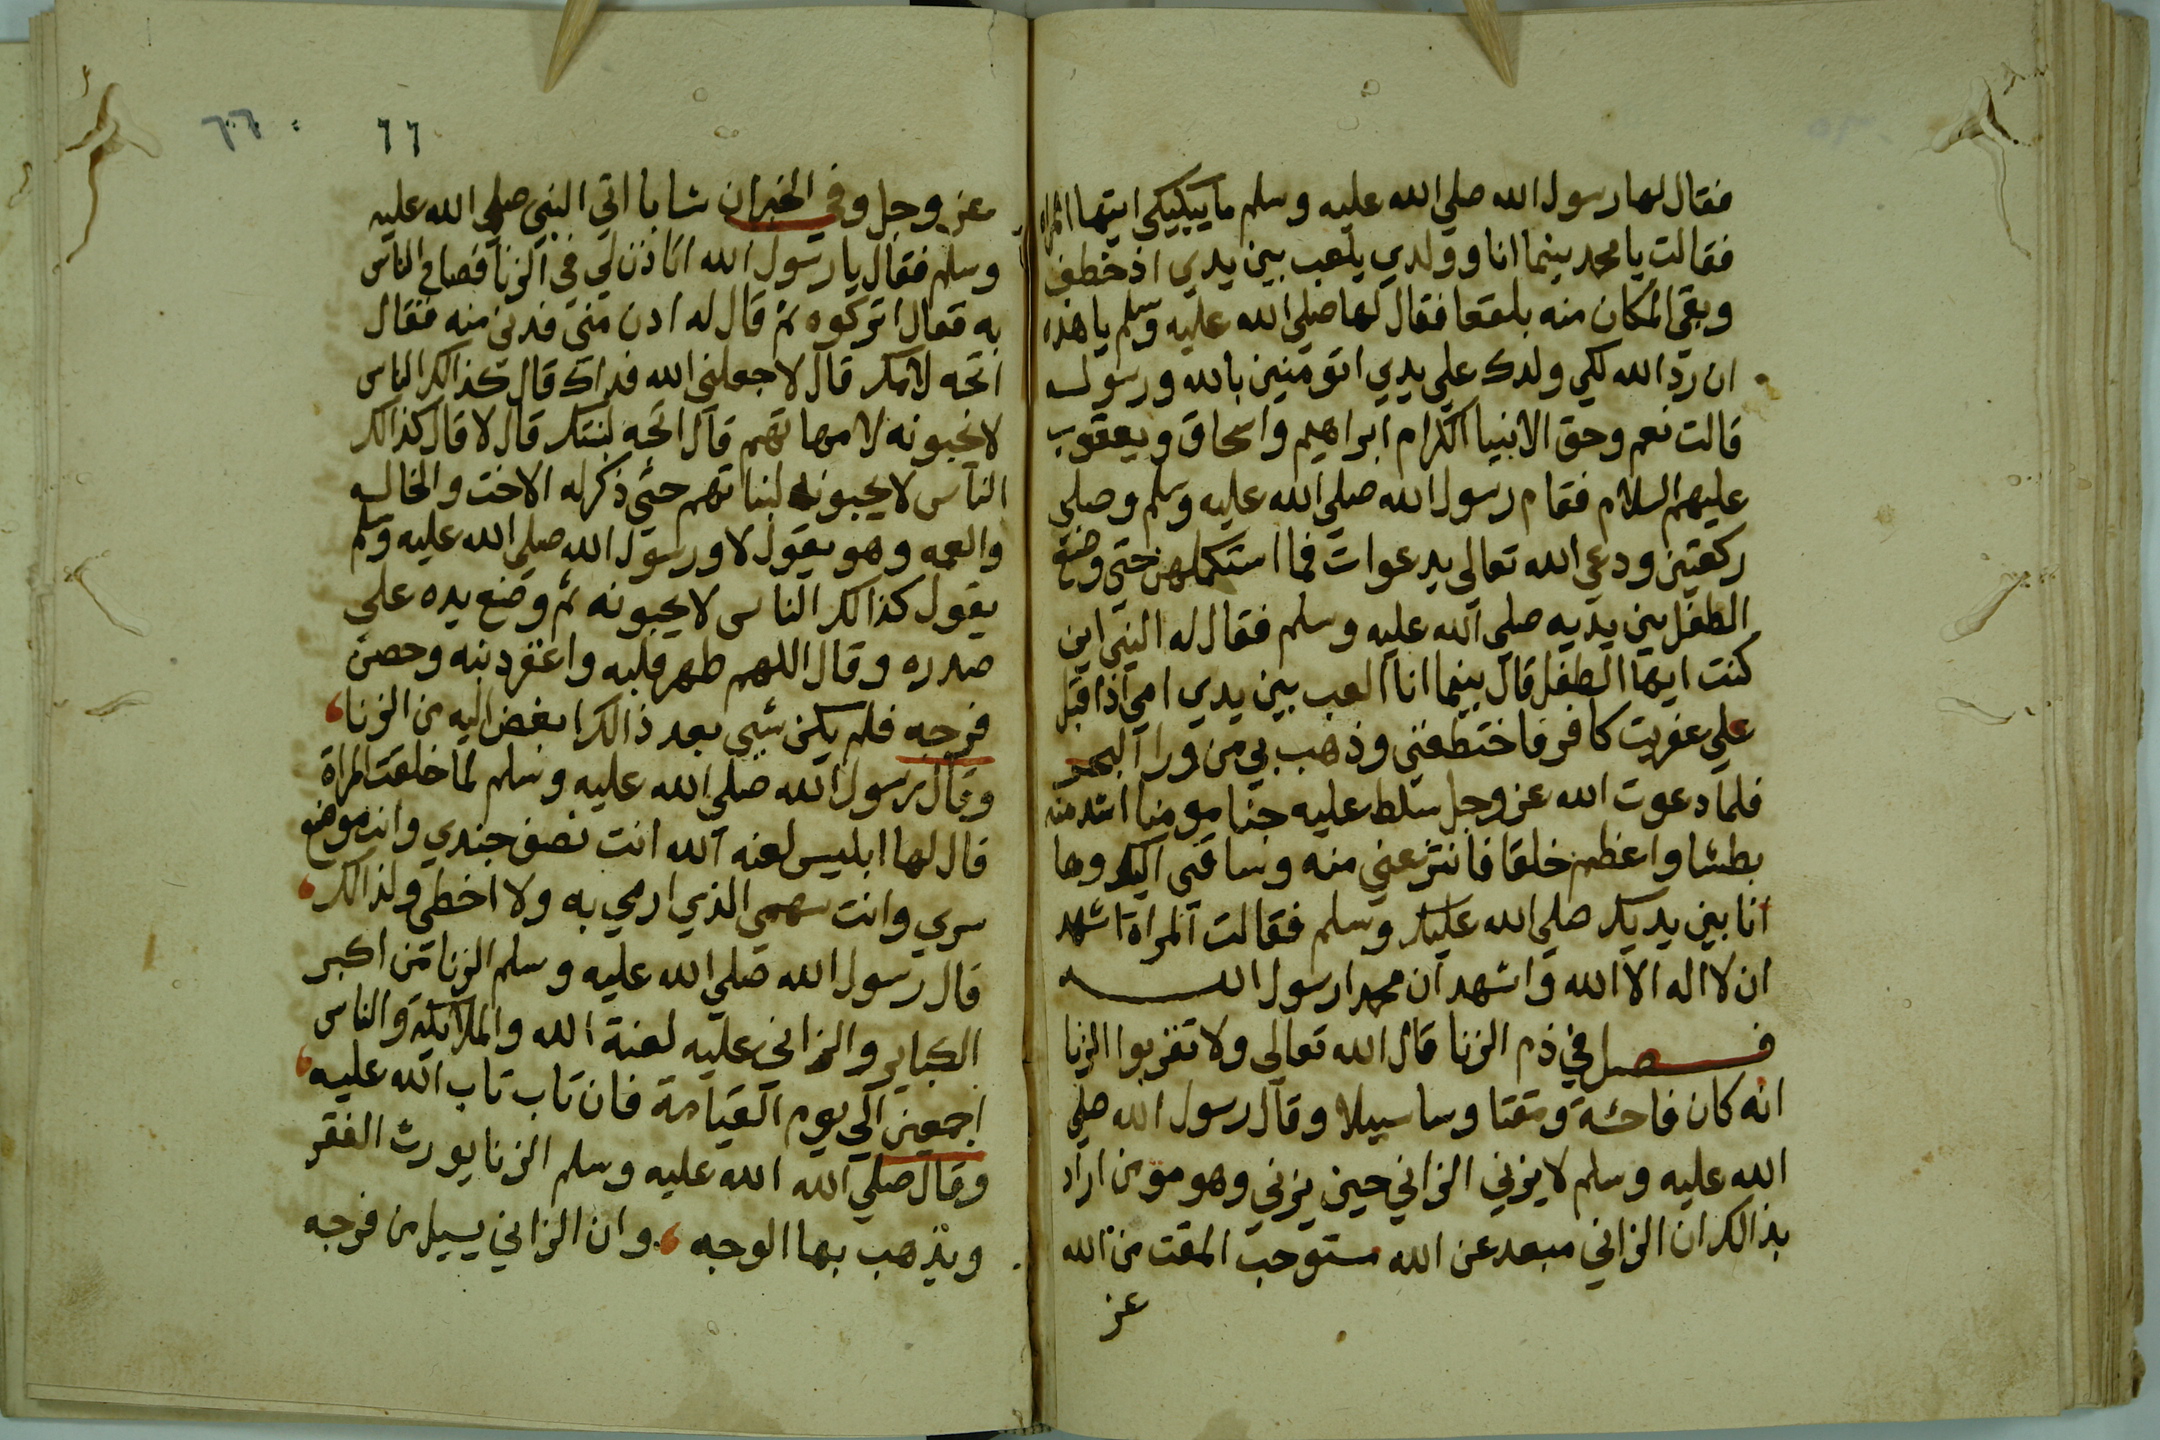 فقال لها رسول الله صلي الله عليه وسلم ما يبكيكي ايتها المراه
فقالت يا محمد بينما انا وولدي يلعب بين يدي اذ خطف
وبقي المكان منه بلقعا فقال لها صلي الله عليه وسلم يا هذه
ان رد الله لكي ولدك علي يدي اتومنين بالله ورسوله
قالت نعم وحق الانبيا الكرام ابراهيم واسحاق ويعقوب
عليهم السلام فقام رسول الله صلي الله عليه وسلم وصلي
ركعتين ودعي الله تعالي بدعوات فما استكملهن حتي وضع
الطفل بين يديه صلي الله عليه وسلم فقال له النبي اين
كنت ايها الطفل قال بينما انا العب بين يدي امي اذ اقبل
علي عفريت كافر فاختطفني وذهب بي من ورا البحر
فلما دعوت الله عز وجل سلط عليه جنا مومنا اشد منه
بطشا واعظم خلقا فانتزعني منه وساقني اليك وها
انا بين يديك صلي الله عليك وسلم فقالت المراة اشهد
ان لا اله الا الله واشهد ان محمدا رسول الله
فصل في ذم الزنا قال الله تعالي ولا تقربوا الزنا
انه كان فاحشة ومقتا وسا سبيلا وقال رسول الله صلي
الله عليه وسلم لا يزني الزاني حين يزني وهو مومن اراد
بذالك ان الزاني مبعد عن الله مستوجب المقت من الله
عز
٦٦ ٦٦
عز وجل وفي الخبر ان شابا اتي النبي صلي الله عليه
وسلم فقال يا رسول الله اتاذن لي في الزنا فصاح الناس
به فقال اتركوه ثم قال له ادن مني فدني منه فقال
اتحه لامك قال لا جعلني الله فداك قال كذالك الناس
لا يحبونه لامهاتهم قال اتحبه لبنتك قال لا قال كذالك
الناس لا يحبونه لبناتهم حتي ذكر له الاخت والخاله
والعمه وهو يقول لا ورسول الله صلي الله عليه وسلم
يقول كذالك الناس لا يحبونه ثم وضع يده علي
صدره وقال اللهم طهر قلبه واغفر ذنبه وحصن
فرجه فلم يكن شي بعد ذالك ابغض اليه من الزنا
وقال رسول الله صلي الله عليه وسلم لما خلقت المراة
قال لها ابليس لعنه الله انت نصف جندي وانت موضع
سري وانت سهمي الذي ارمي به ولا اخطي ولذالك
قال رسول الله صلي الله عليه وسلم الزنا من اكبر
الكباير والزاني عليه لعنة الله والملائكة والناس
اجمعين الي يوم القيامة فان تاب تاب الله عليه
وقال صلي الله الله عليه وسلم الزنا يورث الفقر
ويذهب بها الوجه وان الزاني يسيل من فرجه